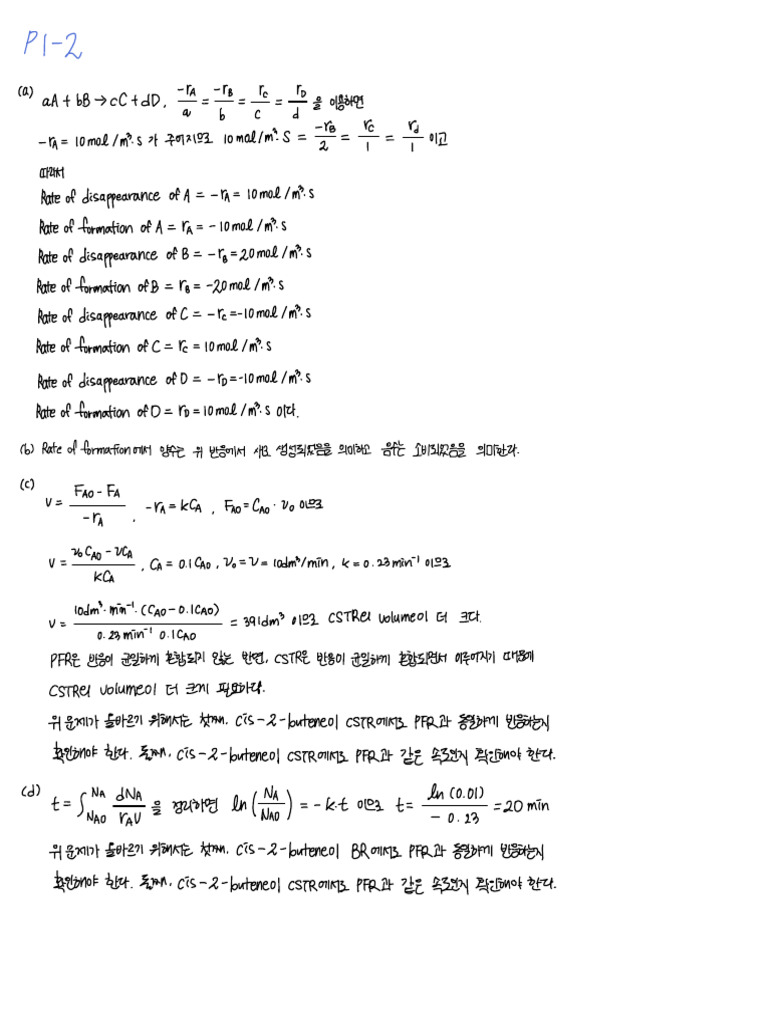 P1-2
(a) aA + bB → cC + dD, -rA/a = -rB/b = rC/c = rD/d 을 이용하면
-rA = 10 mol/m³·s 가 주어지므로 10 mol/m³·s = -rB/2 = rC/1 = rd/1 이고
따라서
Rate of disappearance of A = -rA = 10 mol/m³·s
Rate of formation of A = rA = -10 mol/m³·s
Rate of disappearance of B = -rB = 20 mol/m³·s
Rate of formation of B = rB = -20 mol/m³·s
Rate of disappearance of C = -rC = -10 mol/m³·s
Rate of formation of C = rC = 10 mol/m³·s
Rate of disappearance of D = -rD = -10 mol/m³·s
Rate of formation of D = rD = 10 mol/m³·s 이다.
(b) Rate of formation에서 양수는 위 반응에서 생성되었음을 의미하고 음수는 소비되었음을 의미한다.
(c) V = (FA0 - FA)/(-rA), -rA = kCA, FA0 = CA0 · v0 이므로
V = (v0CA0 - vCA)/(kCA), CA = 0.1CA0, v0 = v = 10dm³/min, k = 0.23 min⁻¹ 이므로
V = (10dm³·min⁻¹·(CA0 - 0.1CA0))/(0.23 min⁻¹ 0.1CA0) = 391dm³ 이므로 CSTR의 volume이 더 크다.
PFR은 반응이 균일하게 혼합되지 않는 반면, CSTR은 반응이 균일하게 혼합되면서 이루어지기 때문에
CSTR의 volume이 더 크게 필요하다.
위 문제가 올바르기 위해서는 첫째, cis-2-butene이 CSTR에서도 PFR과 동일하게 반응하는지
확인해야 한다. 둘째, cis-2-butene이 CSTR에서도 PFR과 같은 속도인지 확인해야 한다.
(d) t = ∫NA0^NA dNA/(rAV) 을 정리하면 ln(NA/NA0) = -k·t 이므로 t = ln(0.01)/(-0.23) = 20 min
위 문제가 올바르기 위해서는 첫째, cis-2-butene이 BR에서도 PFR과 동일하게 반응하는지
확인해야 한다. 둘째, cis-2-butene이 CSTR에서도 PFR과 같은 속도인지 확인해야 한다.